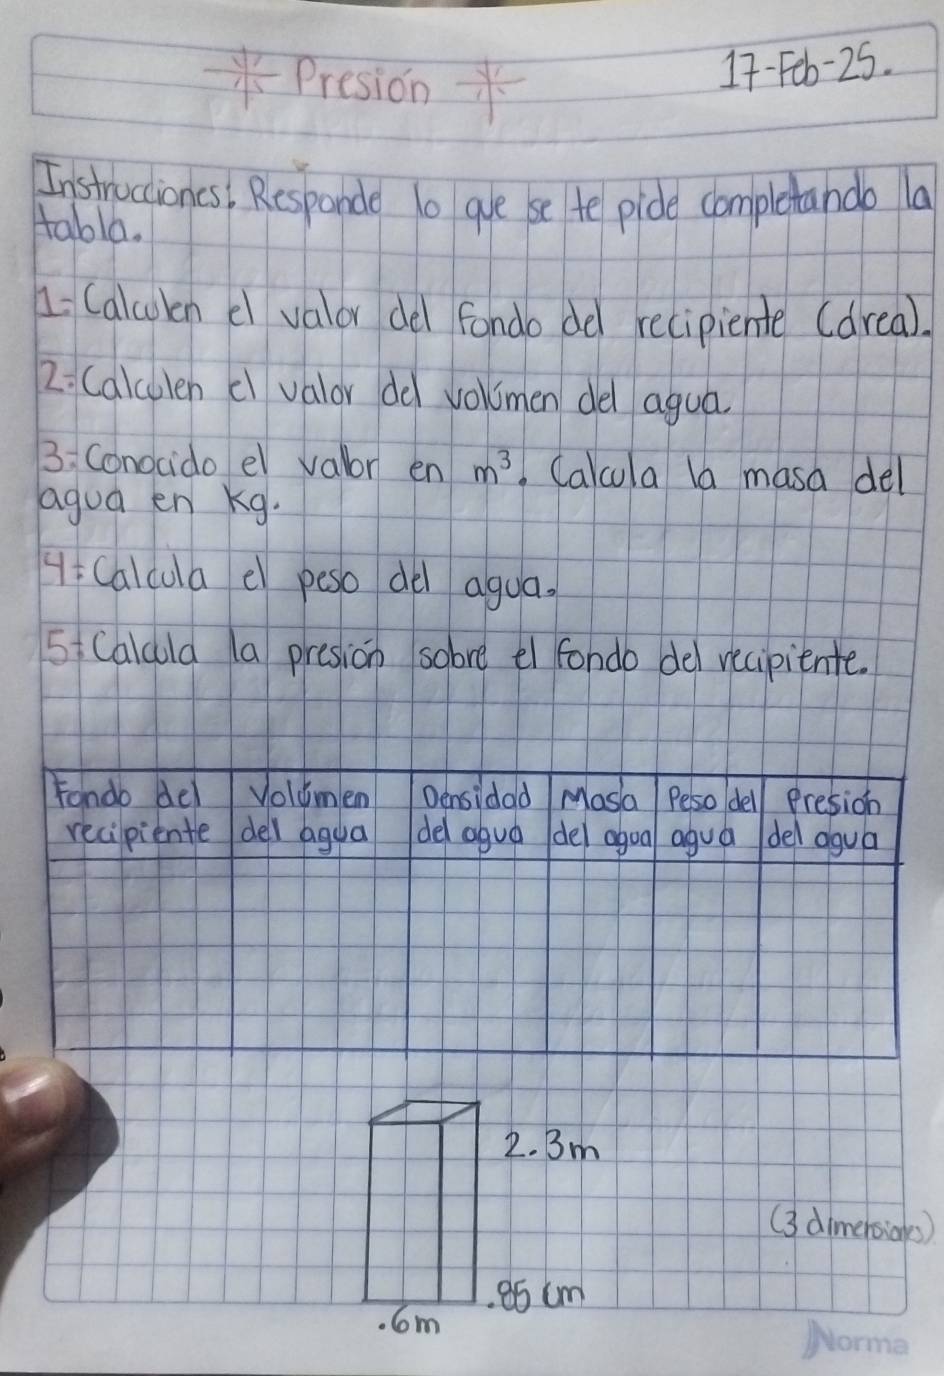 Presión
17-Feb-25.
Instrucciones: Responde lo que se te pide completando la
tabla.
1- Calculen el valor del fondo del recipiente (área).
2- Calculen el valor del volúmen del agua.
3- Conocido el valor en m³. Calcula la masa del
agua en kg.
4- Calcula el peso del agua.
5- Calcula la presión sobre el fondo del recipiente.
Fondo del recipiente
Volúmen del agua
Densidad del agua
Masa del agua
Peso del agua
Presión del agua
2.3m
(3 dimensiones)
.85 cm
.6m
Norma